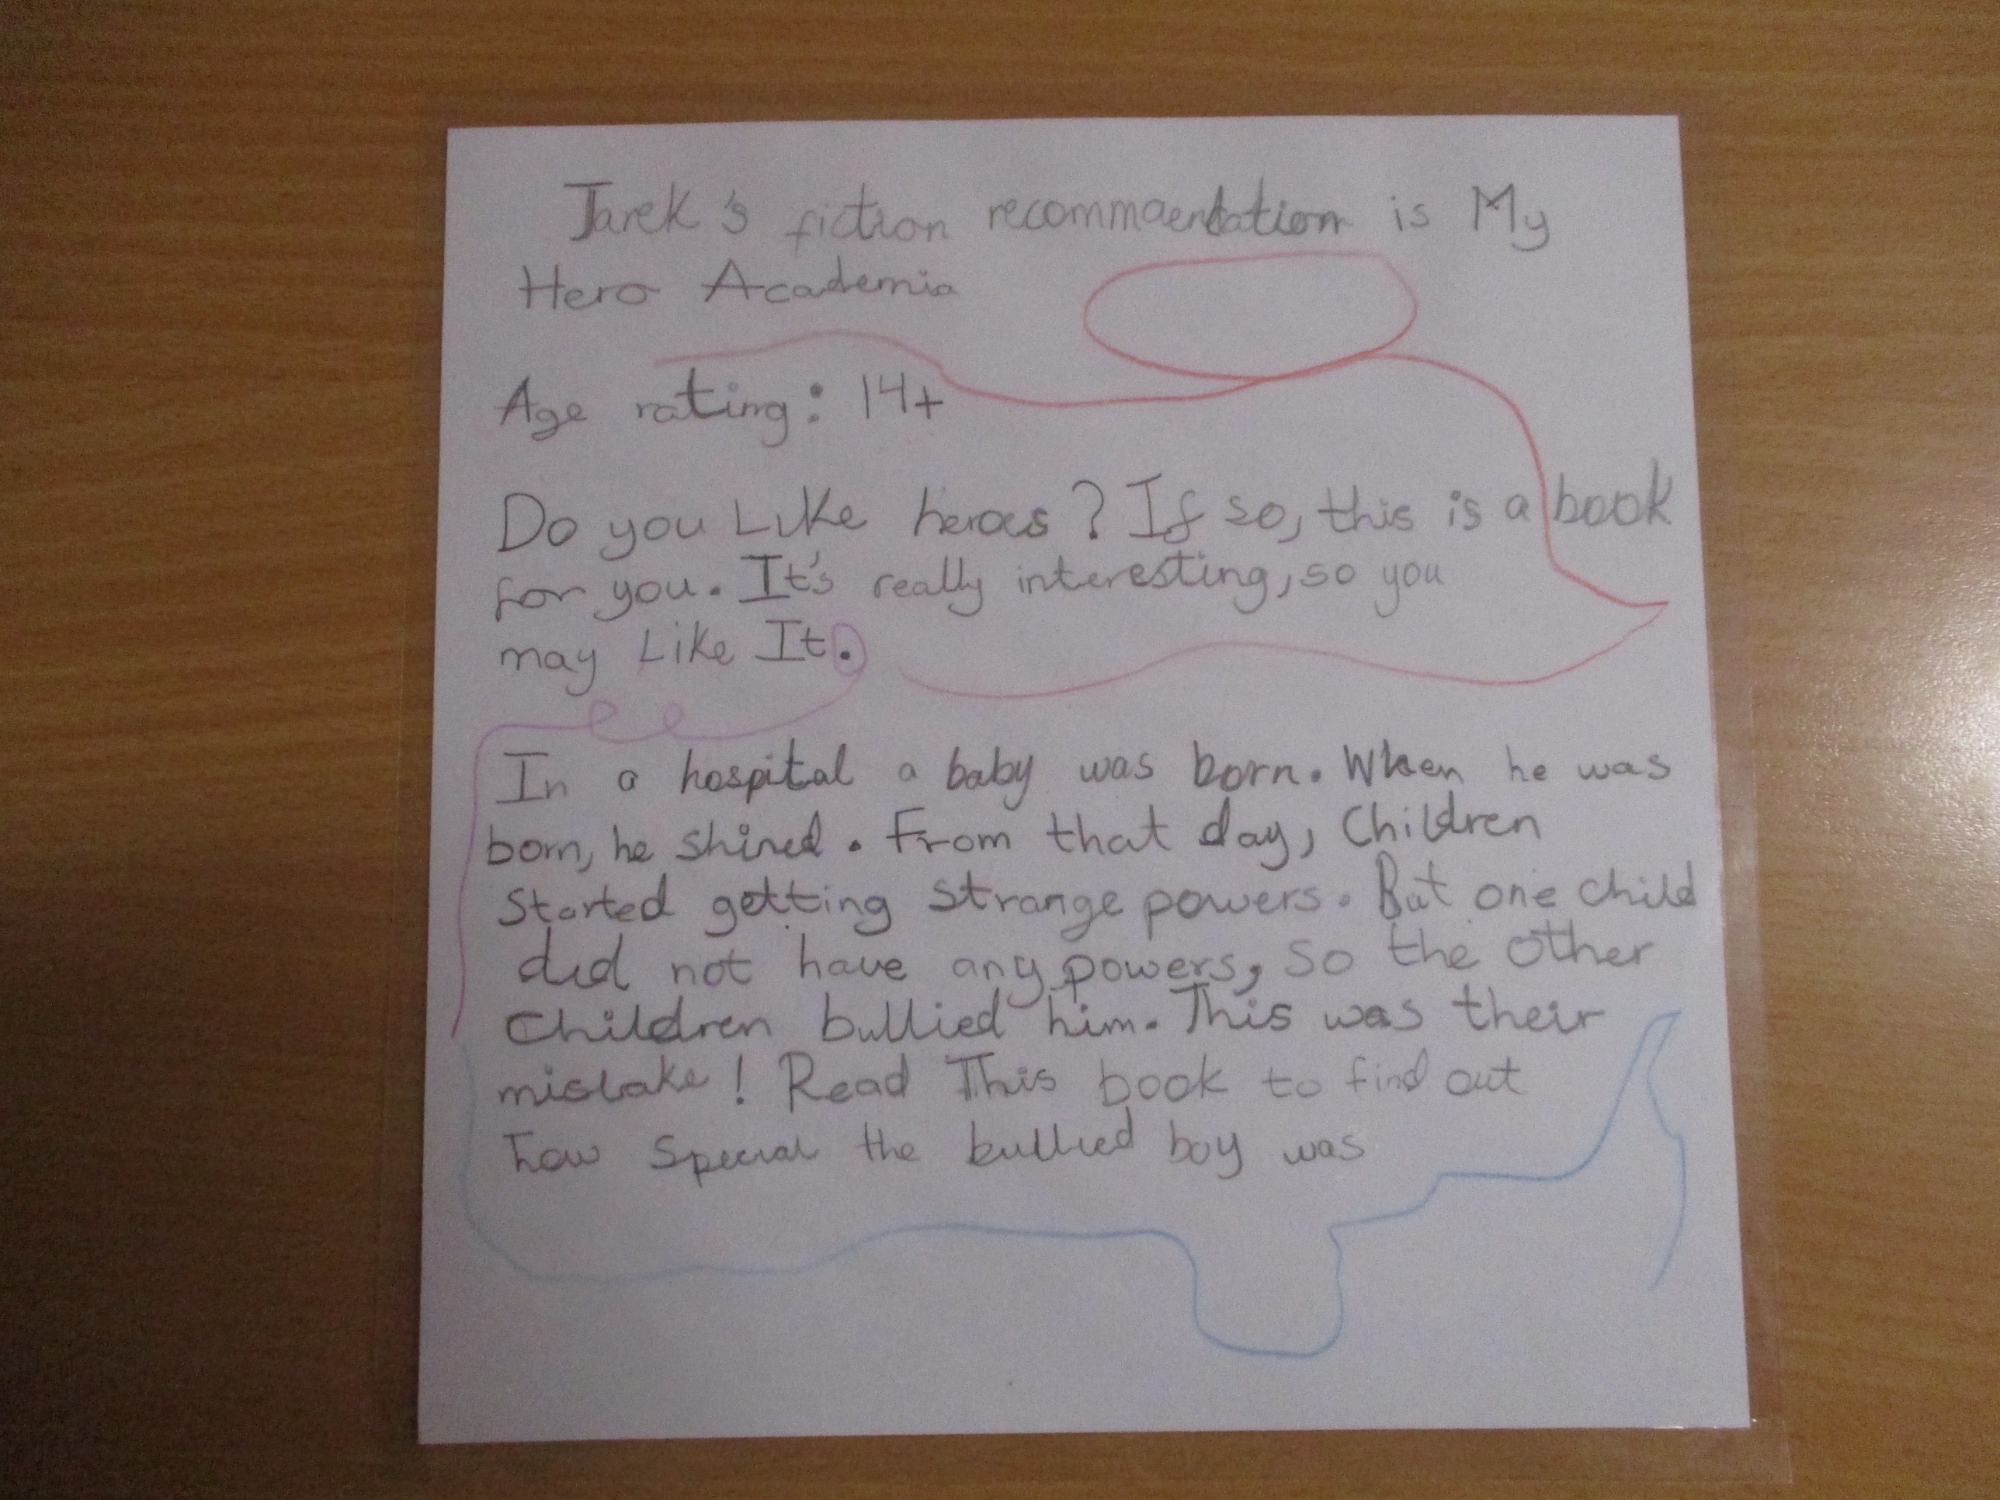 Jarek's fiction recommaendation is My
Hero Academia
Age rating: 14+
Do you Like heroes? If so, this is a book
for you. It's really interesting, so you
may Like It.
In a hospital a baby was born. When he was
born, he shined. From that day, Children
Started getting strange powers. But one child
did not have any powers, so the other
Children bullied him. This was their
mistake! Read This book to find out
how Special the bullied boy was